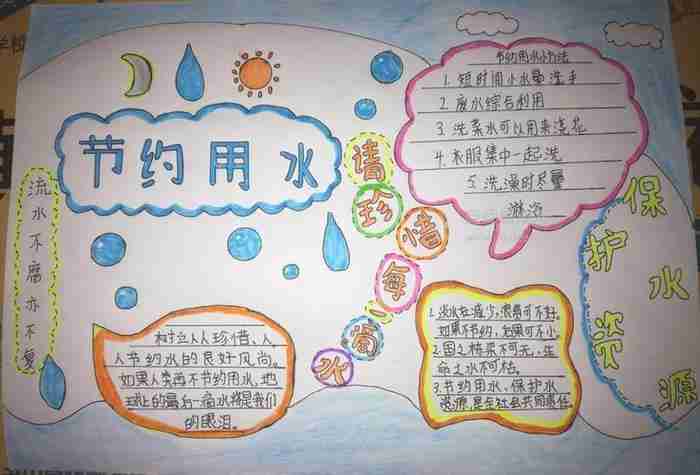 节约用水
流水不腐亦不复
请珍惜每一滴水
节约用水小方法
1. 短时用小水量洗手
2. 废水综合利用
3. 洗菜水可以用来浇花
4. 衣服集中一起洗
5. 洗澡时尽量
淋浴
保护水资源
树立人人珍惜、人
人节约水的良好风尚。
如果人类再不节约用水,地
球上的最后一滴水将是我们
的眼泪。
1. 淡水在减少,浪费可不好,
如果不节约,后果可不小
2. 国之栋梁不可无,生
命之水不可枯。
3. 节约用水,保护水
资源,是全社会共同责任